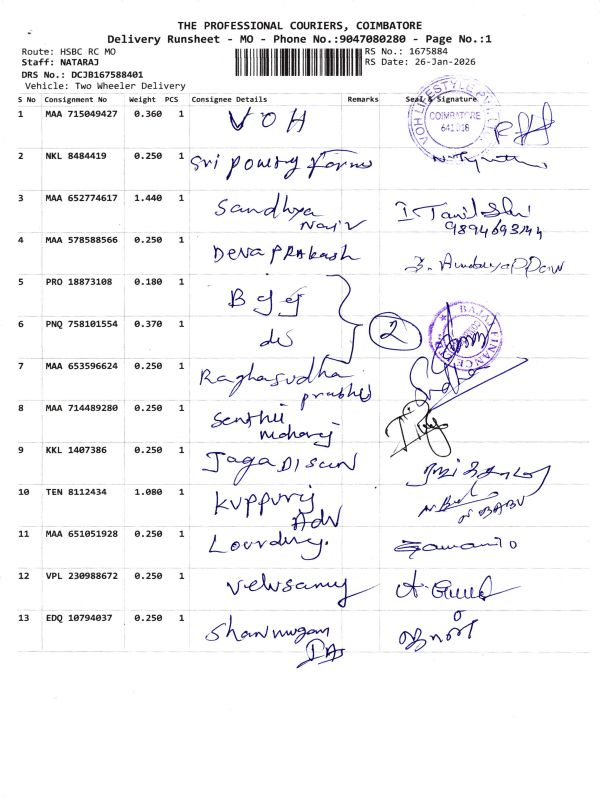 THE PROFESSIONAL COURIERS, COIMBATORE
Delivery Runsheet - MO - Phone No.:9047080280 - Page No.:1
Route: HSBC RC MO
RS No.: 1675884
Staff: NATARAJ
RS Date: 26-Jan-2026
DRS No.: DCJB167588401
Vehicle: Two Wheeler Delivery
S No Consignment No Weight PCS Consignee Details Remarks Seal & Signature
1 MAA 715049427 0.360 1 VOH
VOH LIFESTYLE
COIMBATORE
2 NKL 8484419 0.250 1 Sri Powery Forms
3 MAA 652774617 1.440 1 Sandhya
Nair
9894693144
4 MAA 578588566 0.250 1 Deva PRAkash
5 PRO 18873108 0.180 1
6 PNQ 758101554 0.370 1
2
BAJAJ FINANCE
7 MAA 653596624 0.250 1 Raghasudha
prabhu
8 MAA 714489280 0.250 1 Senthil
9 KKL 1407386 0.250 1 JagaDisan
10 TEN 8112434 1.080 1 Kuppuraj
Adv
N BABU
11 MAA 651051928 0.250 1
12 VPL 230988672 0.250 1 Velusamy
13 EDQ 10794037 0.250 1 Shanmugam